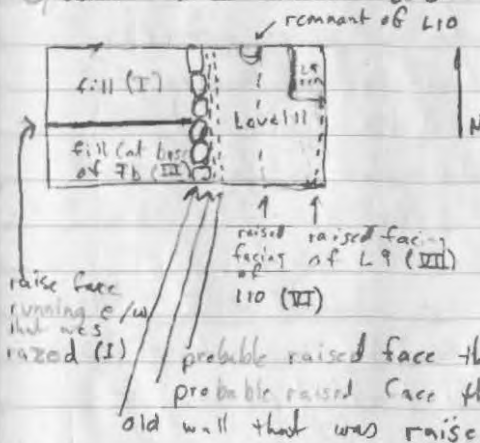 remnant of L10
fill (I)
L9
Level 11
N
fill (at base
of 7b (III)
raised
facing
of
L10 (VI)
raised facing
of L9 (VII)
raise face
running e/w
that was
razed (I)
probable raised face th
probable raised face th
old wall that was raise